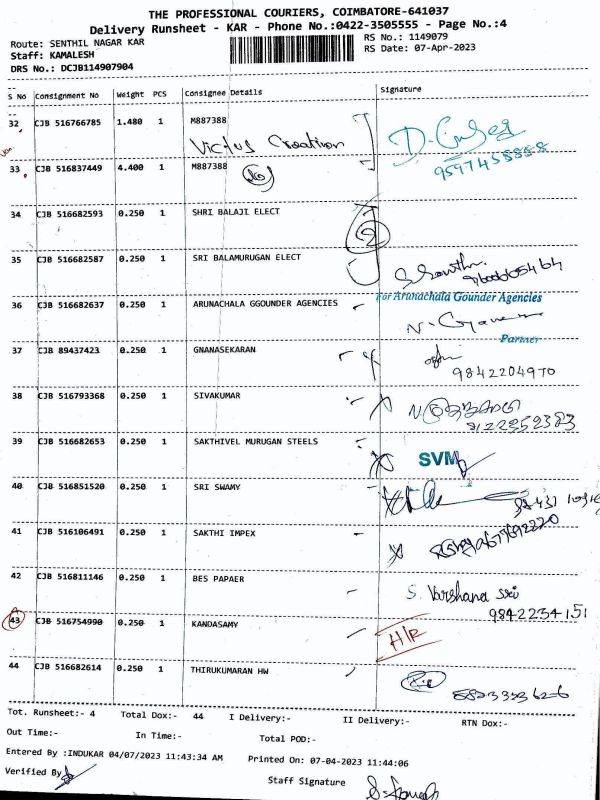 THE PROFESSIONAL COURIERS, COIMBATORE-641037
Delivery Runsheet - KAR - Phone No.:0422-3505555 - Page No.:4
Route: SENTHIL NAGAR KAR RS No.: 1149079
Staff: KAMALESH RS Date: 07-Apr-2023
DRS No.: DCJB114907904
S No Consignment No Weight PCS Consignee Details Signature
32 CJB 516766785 1.480 1 M887388
Victus Creation
33 CJB 516837449 4.400 1 M887388
34 CJB 516682593 0.250 1 SHRI BALAJI ELECT
2
35 CJB 516682587 0.250 1 SRI BALAMURUGAN ELECT
36 CJB 516682637 0.250 1 ARUNACHALA GGOUNDER AGENCIES
For Arunachala Gounder Agencies
Partner
37 CJB 89437423 0.250 1 GNANASEKARAN
9842204970
38 CJB 516793368 0.250 1 SIVAKUMAR
39 CJB 516682653 0.250 1 SAKTHIVEL MURUGAN STEELS
SVM
40 CJB 516851520 0.250 1 SRI SWAMY
41 CJB 516106491 0.250 1 SAKTHI IMPEX
42 CJB 516811146 0.250 1 BES PAPAER
S. Varshana sri
9842234151
43 CJB 516754990 0.250 1 KANDASAMY
H/R
44 CJB 516682614 0.250 1 THIRUKUMARAN HW
Tot. Runsheet:- 4 Total Dox:- 44 I Delivery:- II Delivery:- RTN Dox:-
Out Time:- In Time:- Total POD:-
Entered By :INDUKAR 04/07/2023 11:43:34 AM Printed On: 07-04-2023 11:44:06
Verified By
Staff Signature